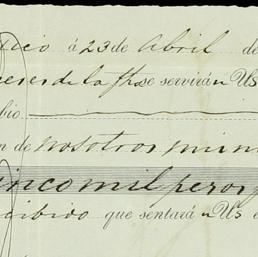 xico á 23 de Abril de
meses de la fha se servirán Us
bio
n de nosotros mism
inco mil pesos
cibido que sentarán Us e